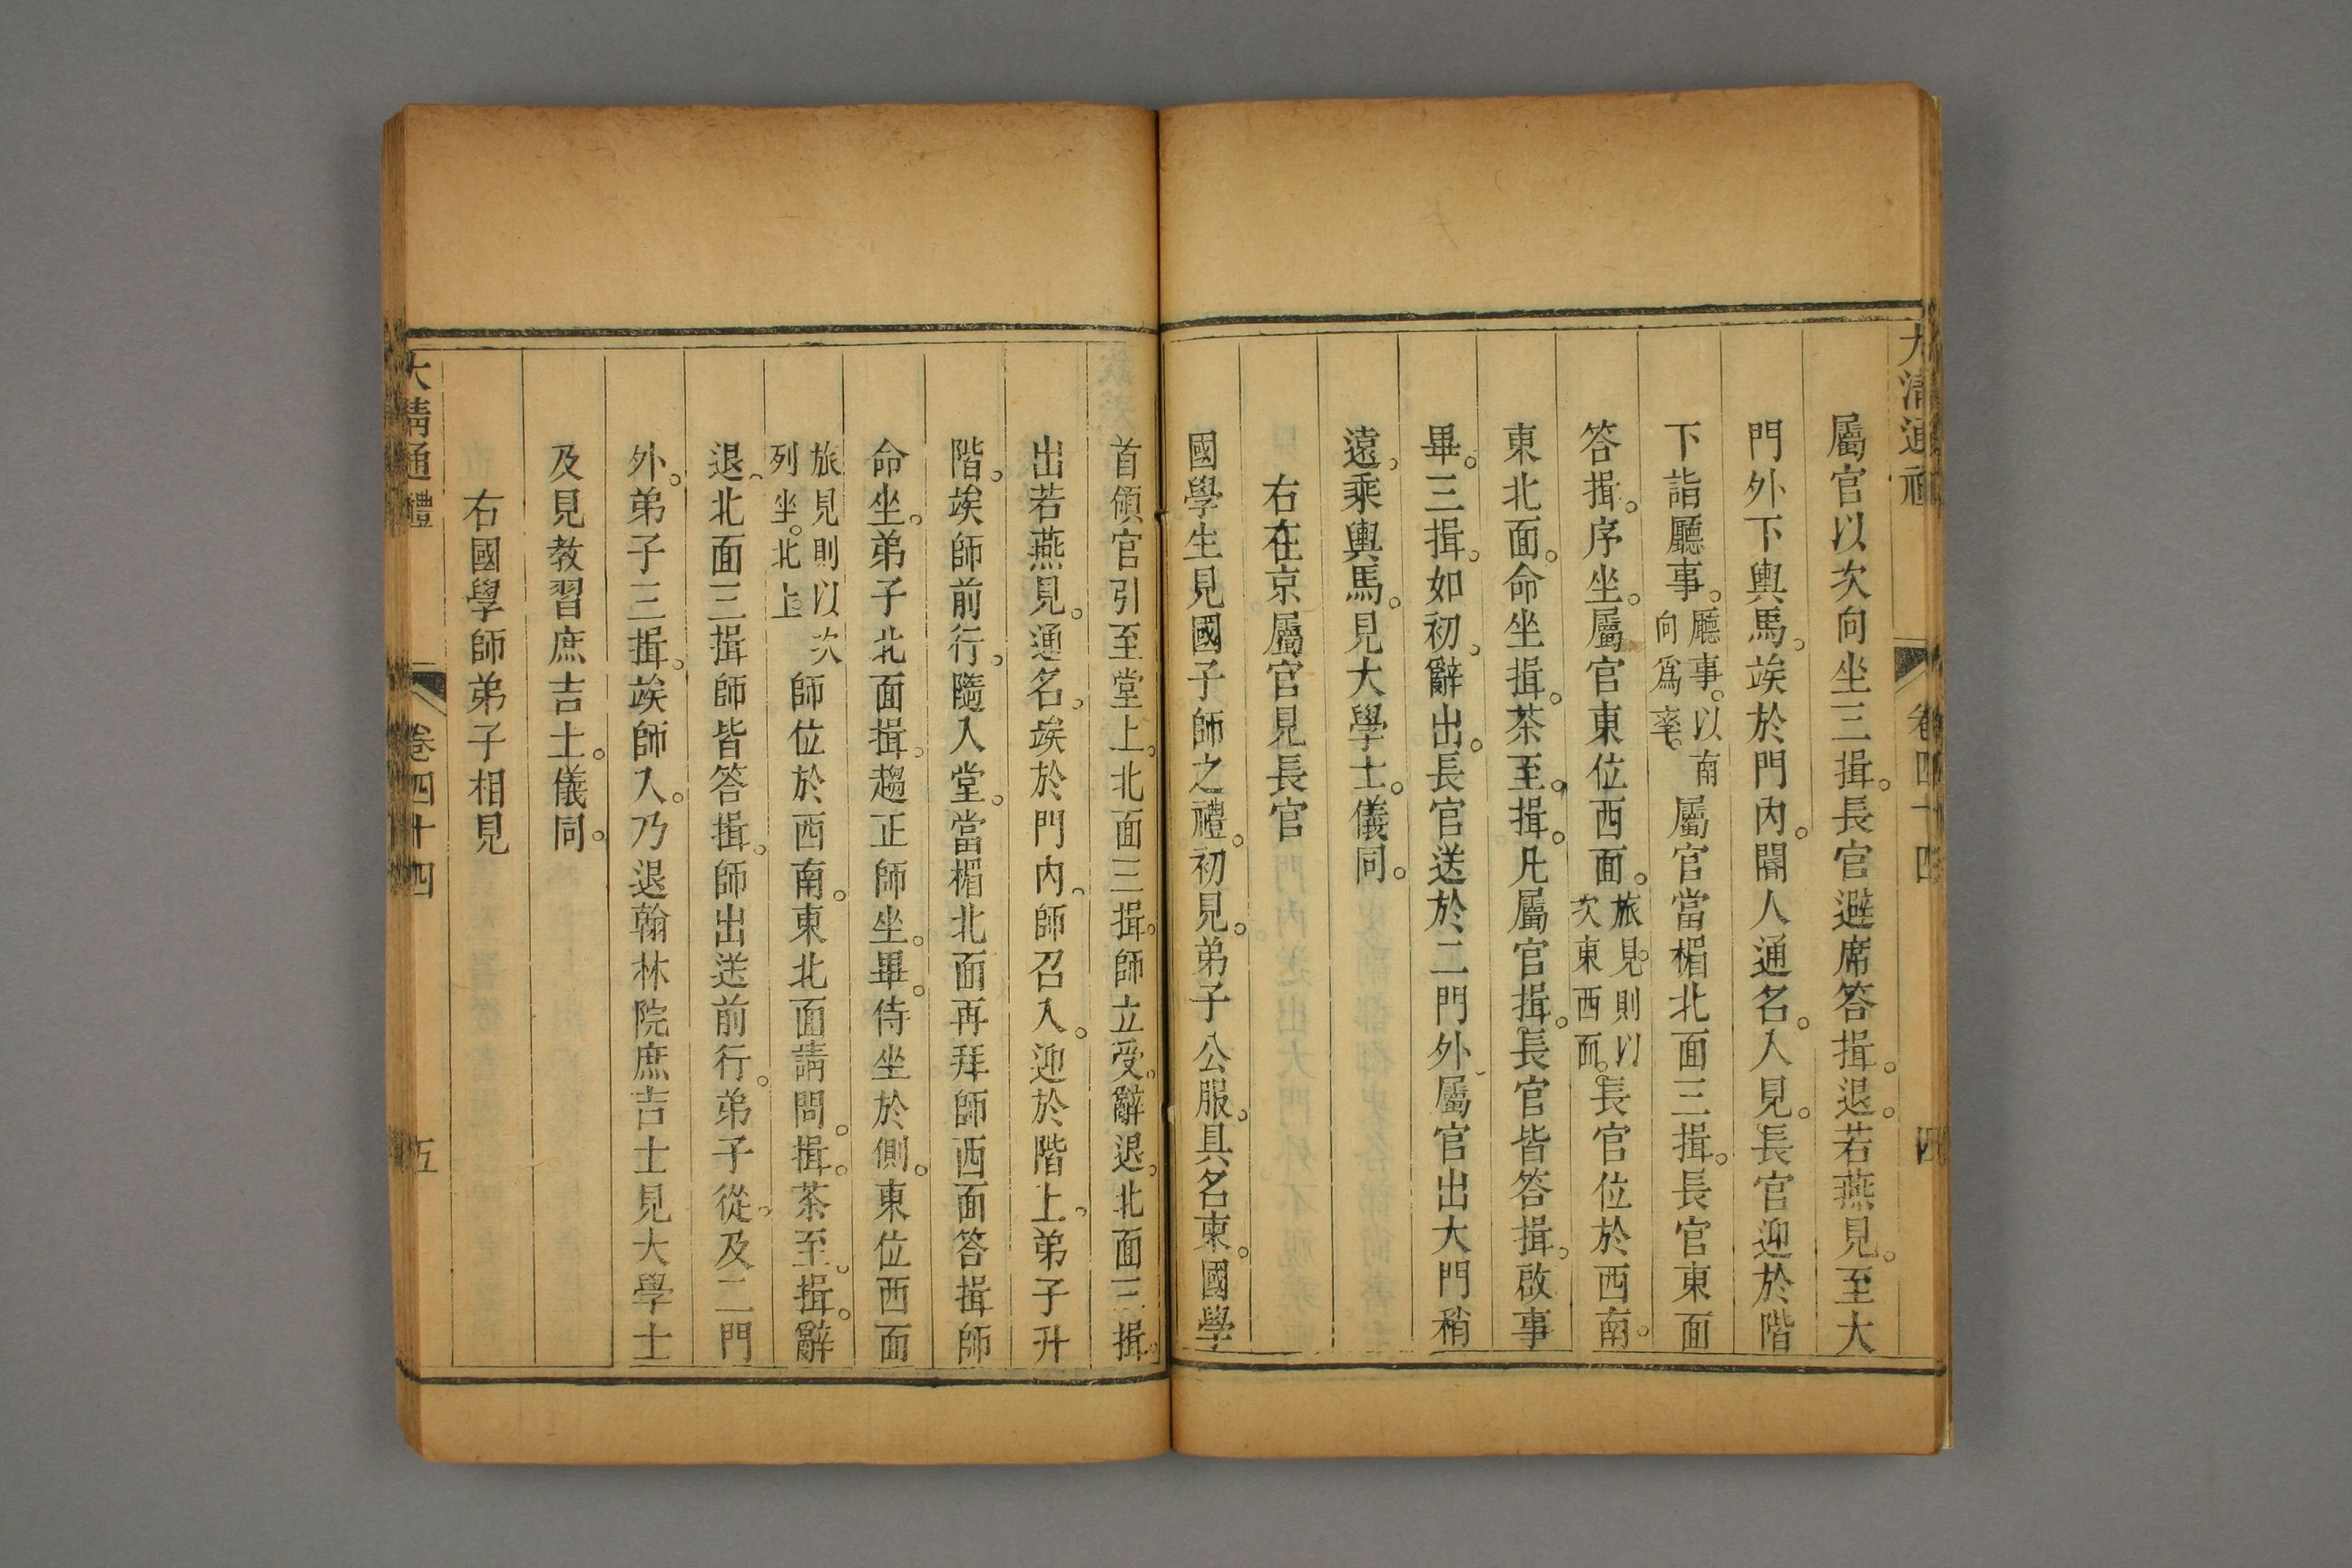 大清通禮 卷四十四 四
屬官以次向坐三揖。長官避席答揖。退。若燕見。至大
門外下輿馬。竢於門內。閽人通名。入見。長官迎於階
下詣廳事。廳事。以南向為率。屬官當楣北面三揖。長官東面
答揖。序坐。屬官東位西面。旅見。則以次東西面。長官位於西南。
東北面。命坐揖。茶至。揖。凡屬官揖。長官皆答揖。啟事
畢。三揖。如初。辭出。長官送於二門外。屬官出大門稍
遠。乘輿馬。見大學士。儀同。
右在京屬官見長官
國學生見國子師之禮。初見。弟子公服。具名柬。國學
首領官引至堂上。北面三揖。師立受。辭退。北面三揖。
出若燕見。通名。竢於門內。師召入。迎於階上。弟子升
階。竢師前行。隨入堂。當楣北面再拜師西面答揖師
命坐。弟子北面揖。趨正師坐。畢。侍坐於側。東位西面
旅見則以次列坐。北上。師位於西南。東北面請問。揖。茶至。揖。辭
退。北面三揖師皆答揖。師出送前行。弟子從。及二門
外。弟子三揖。竢師入。乃退翰林院庶吉士見大學士
及見教習庶吉士。儀同。
右國學師弟子相見
大清通禮 卷四十四 五